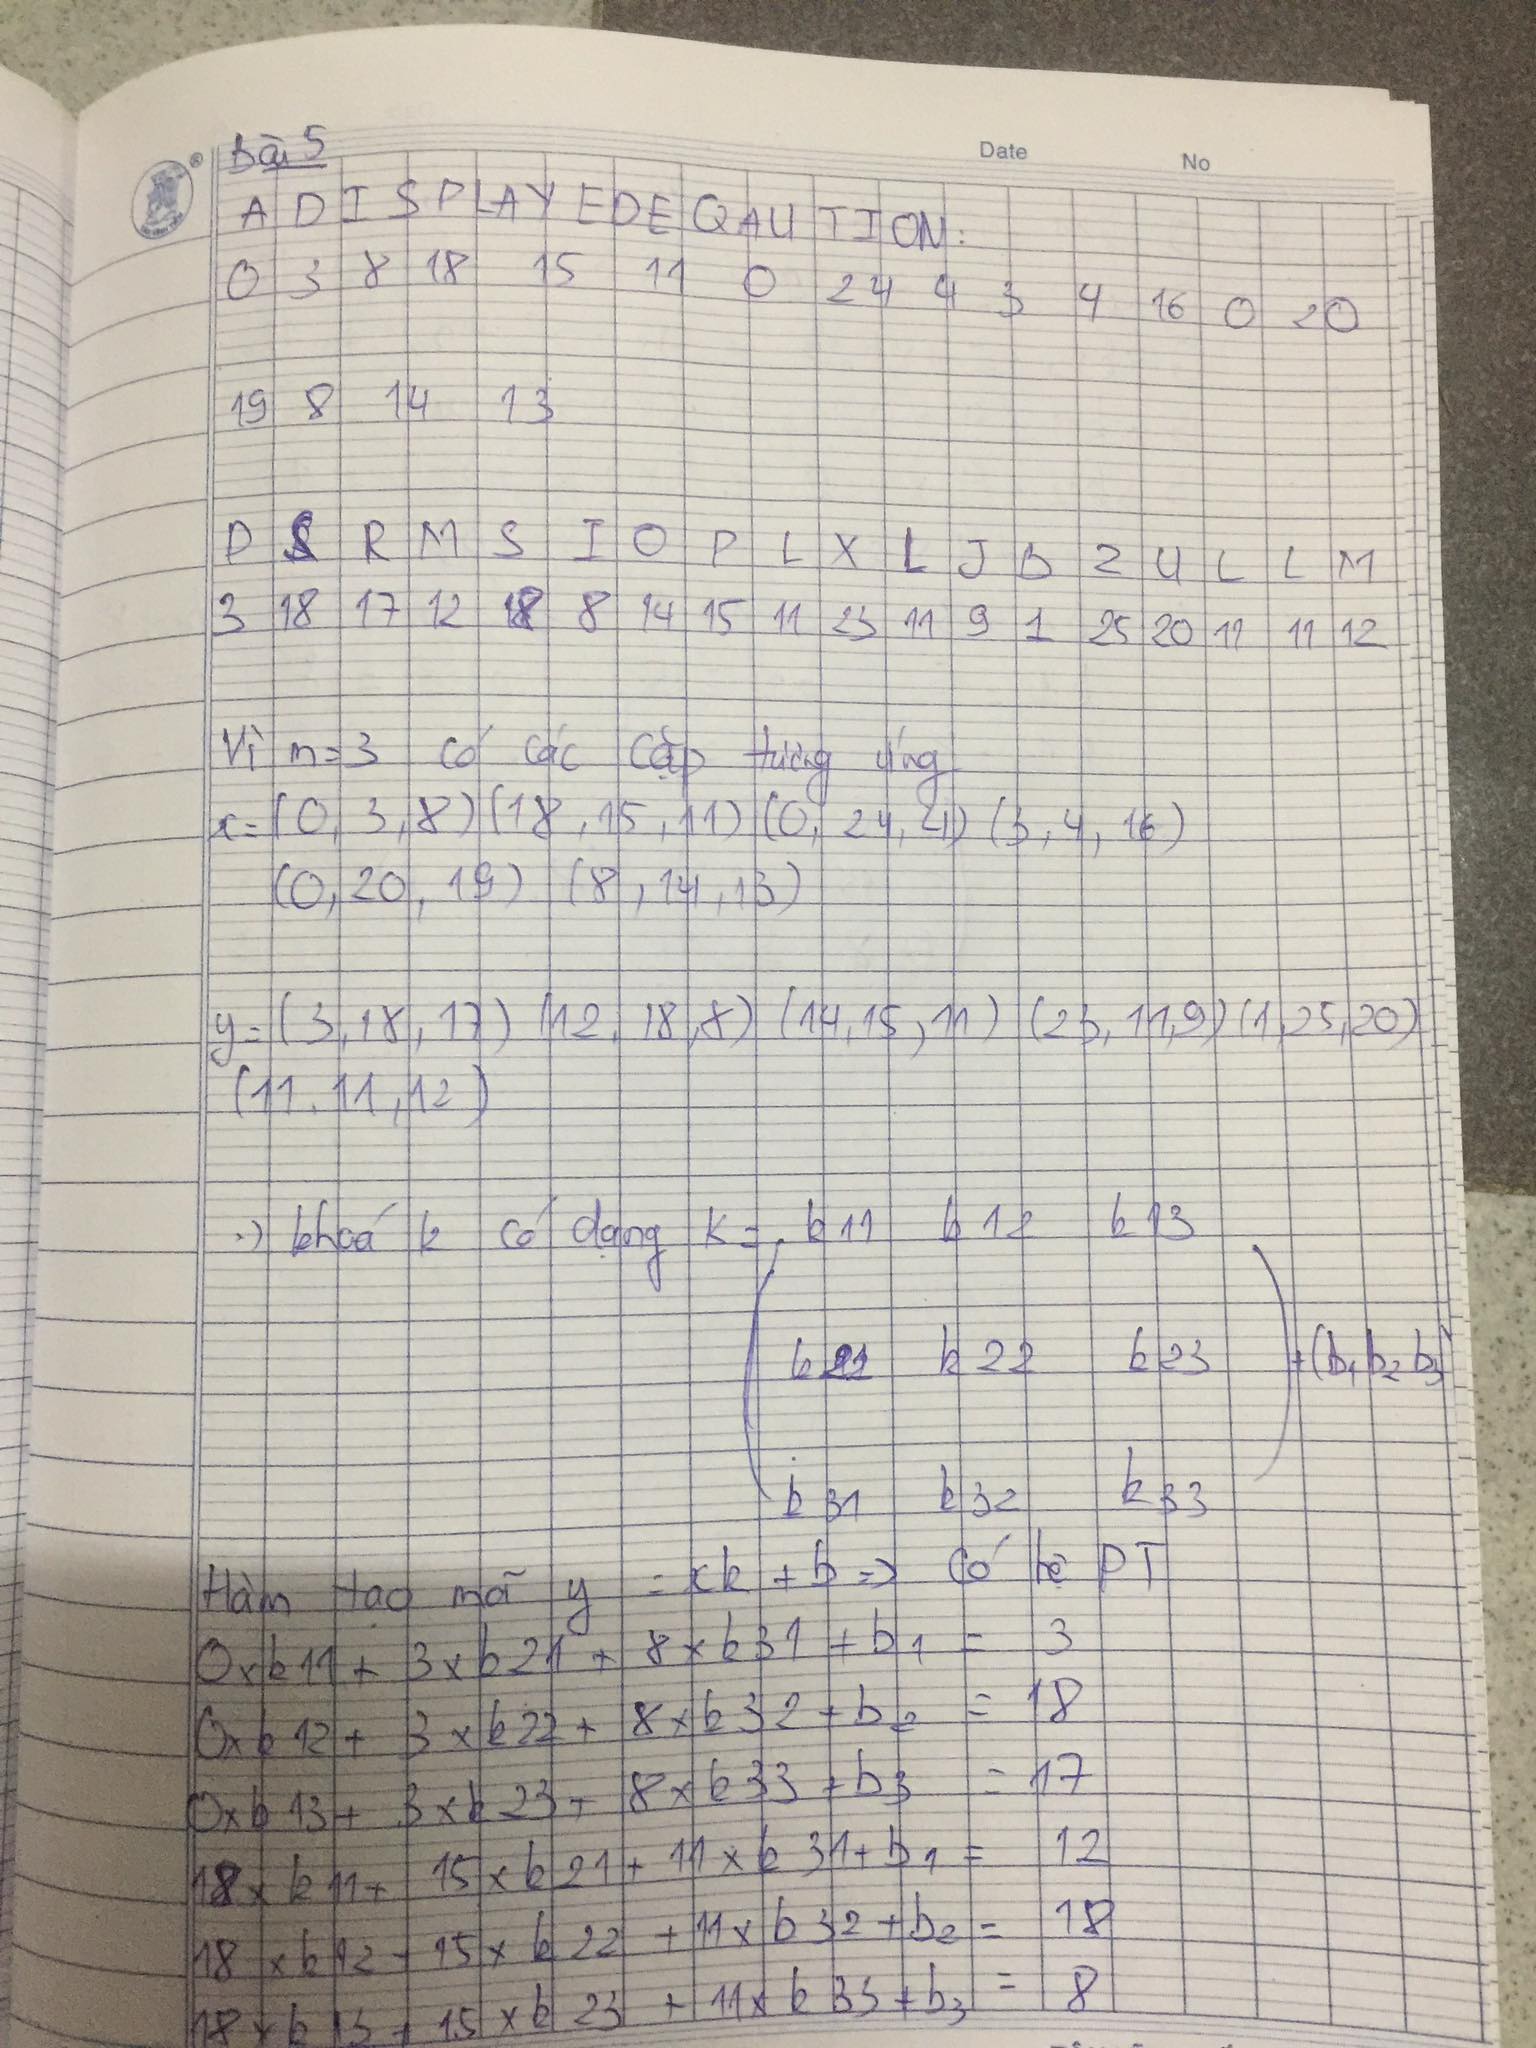 Date No
Bài 5
A D I S P L A Y E D E Q A U T I O N :
0 3 8 18 15 11 0 24 4 3 4 16 0 20
19 8 14 13
D S R M S I O P L X L J B Z U L L M
3 18 17 12 18 8 14 15 11 23 11 9 1 25 20 11 11 12
Vì m=3 có các cặp tương ứng
x= (0, 3, 8) (18, 15, 11) (0, 24, 4) (3, 4, 16)
(0, 20, 19) (8, 14, 13)
y= (3, 18, 17) (12, 18, 8) (14, 15, 11) (23, 11, 9) (1, 25, 20)
(11. 11, 12)
-) khoá k có dạng K= k11 k12 k13
k21 k22 k23 + (b1 b2 b3)
k31 k32 k33
Hàm tạo mã y = xk + b => có hệ PT
0xk11 + 3xk21 + 8xk31 + b1 = 3
0xk12 + 3xk22 + 8xk32 + b2 = 18
0xk13 + 3xk23 + 8xk33 + b3 = 17
18xk11 + 15xk21 + 11xk31 + b1 = 12
18xk12 + 15xk22 + 11xk32 + b2 = 18
18xk13 + 15xk23 + 11xk33 + b3 = 8